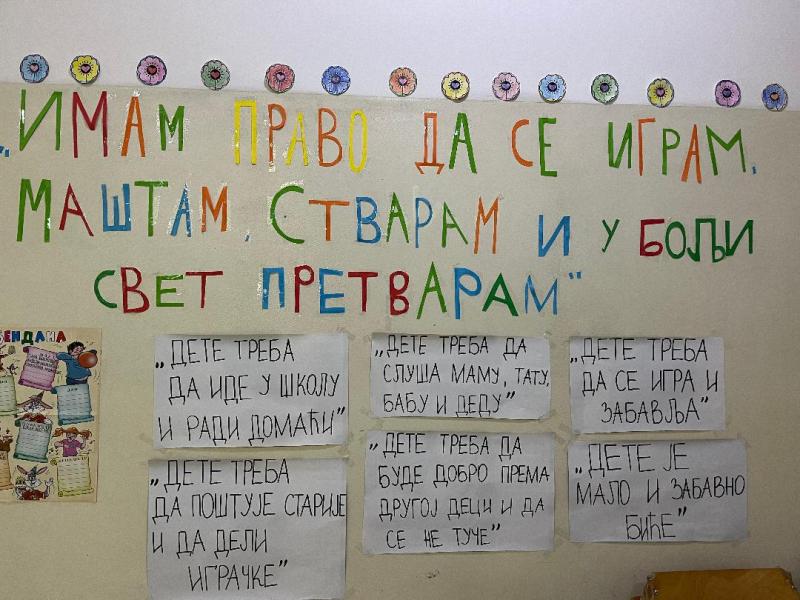 „ИМАМ ПРАВО ДА СЕ ИГРАМ,
МАШТАМ, СТВАРАМ И У БОЉИ
СВЕТ ПРЕТВАРАМ"
ЕНДАНА
„ДЕТЕ ТРЕБА
ДА ИДЕ У ШКОЛУ
И РАДИ ДОМАЋИ"
„ДЕТЕ ТРЕБА ДА
СЛУША МАМУ, ТАТУ,
БАБУ И ДЕДУ"
„ДЕТЕ ТРЕБА
ДА СЕ ИГРА И
ЗАБАВЉА"
„ДЕТЕ ТРЕБА
ДА ПОШТУЈЕ СТАРИЈЕ
И ДА ДЕЛИ
ИГРАЧКЕ"
„ДЕТЕ ТРЕБА ДА
БУДЕ ДОБРО ПРЕМА
ДРУГОЈ ДЕЦИ И ДА
СЕ НЕ ТУЧЕ"
„ДЕТЕ ЈЕ
МАЛО И ЗАБАВНО
БИЋЕ"